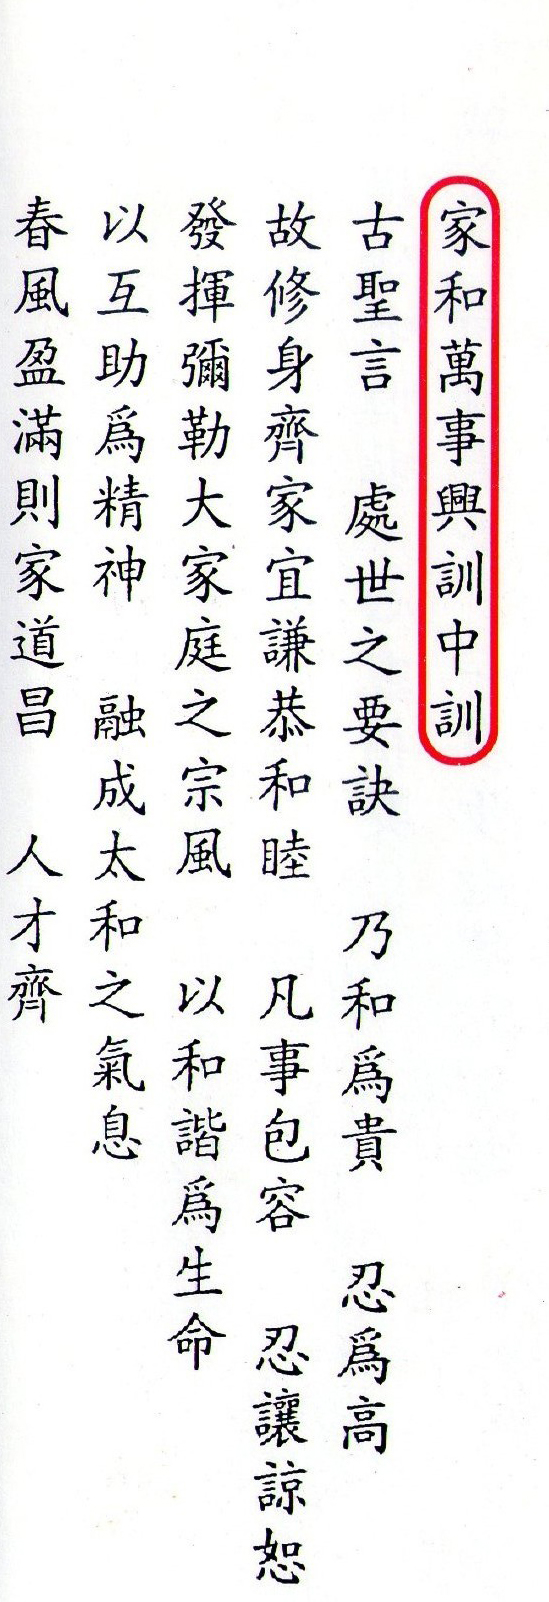 家和萬事興訓中訓
古聖言　處世之要訣　乃和爲貴　忍爲高
故修身齊家宜謙恭和睦　凡事包容　忍讓諒恕
發揮彌勒大家庭之宗風　以和諧爲生命
以互助爲精神　融成太和之氣息
春風盈滿則家道昌　人才齊